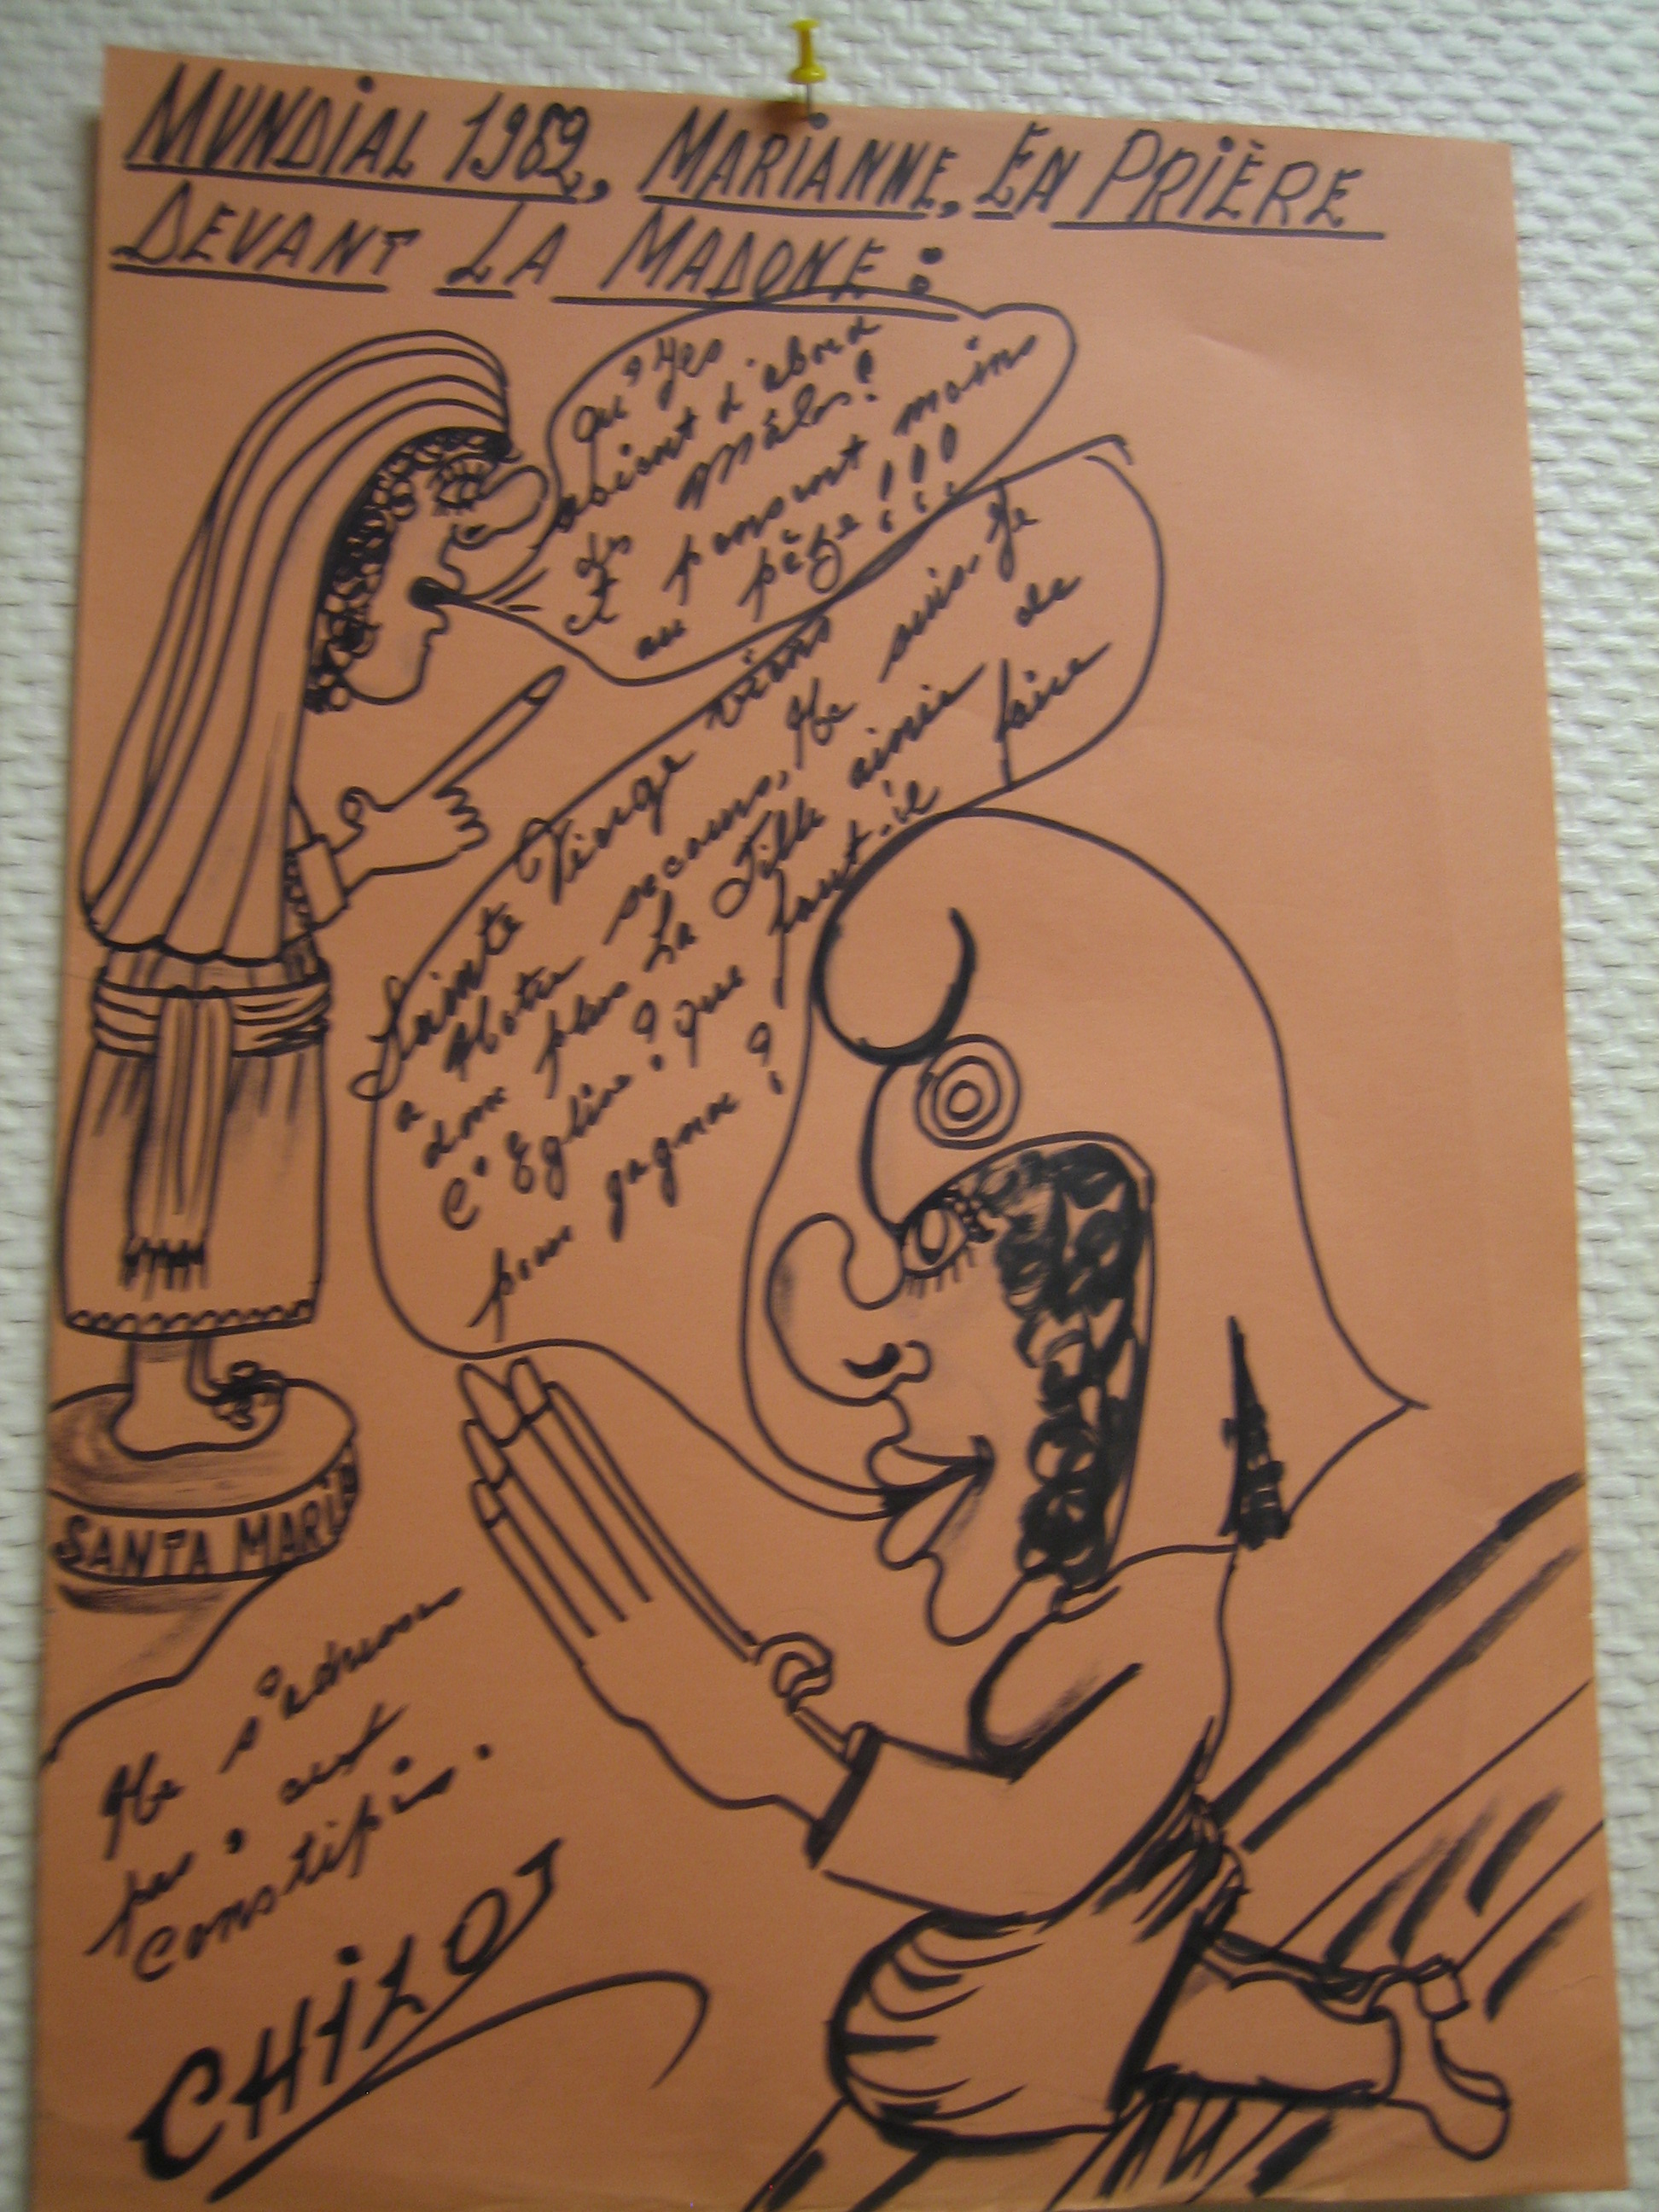 MUNDIAL 1982, MARIANNE, EN PRIÈRE
DEVANT LA MADONE :
qu'yes
soient d'abord
des mâles !
et pensent moins
au pèze !!!
Sainte Vierge viens
à Notre secours, Ne suis-Je
donc plus La Fille ainée de
l'Eglise ? que faut-il faire
pour gagner ?
SANTA MARIA
Ne s'adresse
pas, aux
Constipés.
CHILOT